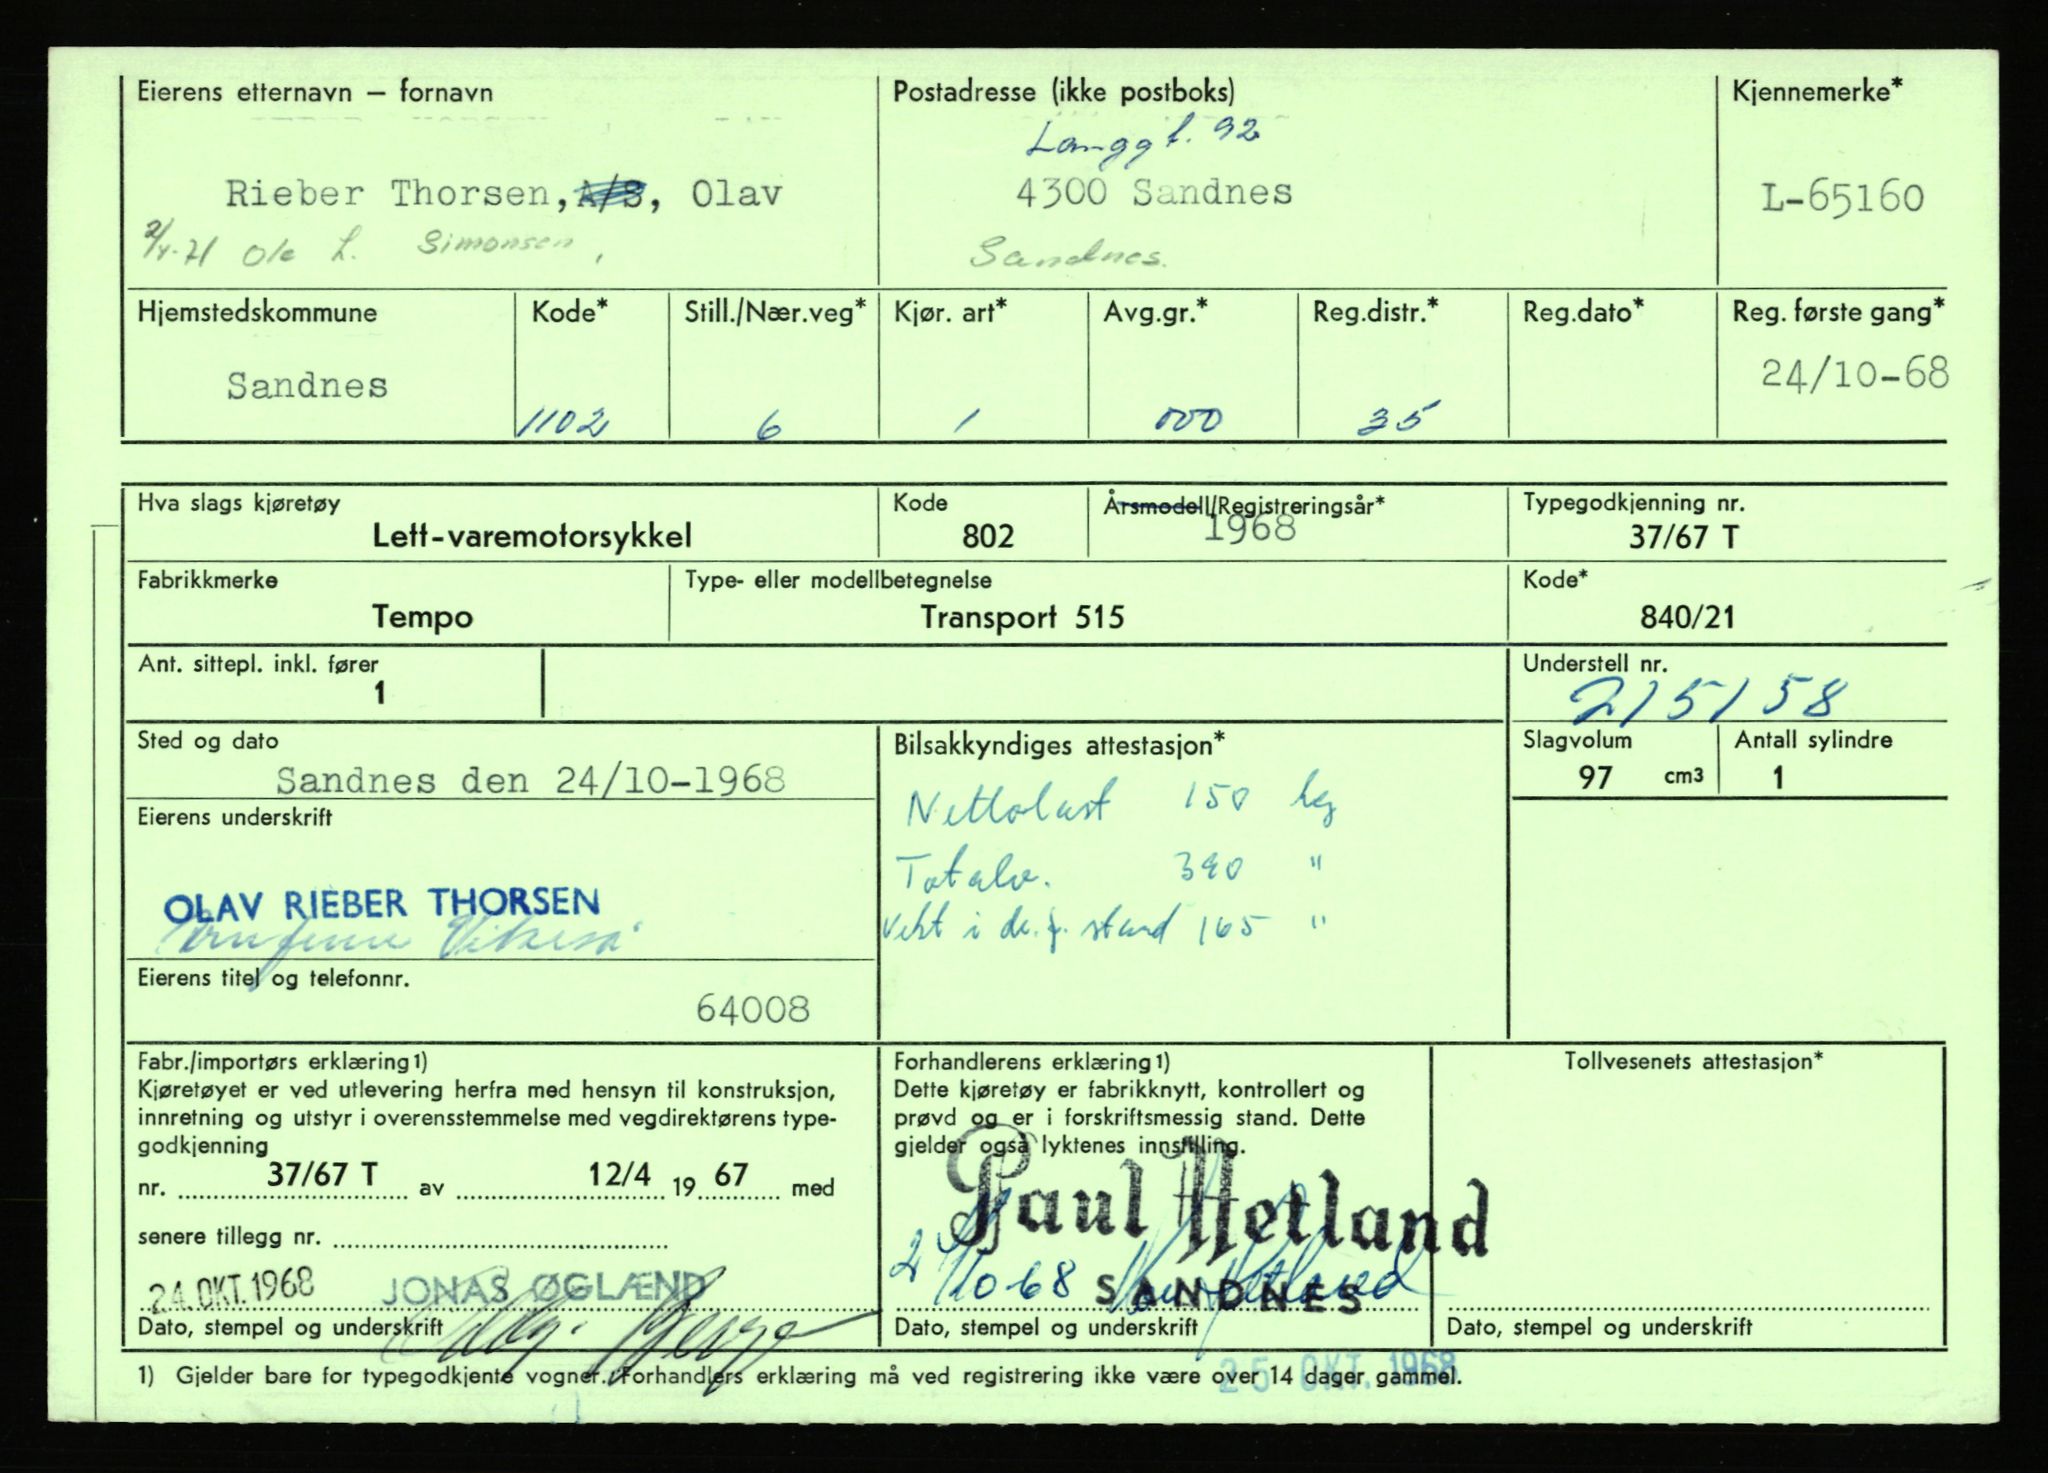 Eierens etternavn – fornavn
Postadresse (ikke postboks)
Kjennemerke*
Langgt. 92
Rieber Thorsen, A/S, Olav
4300 Sandnes
L-65160
2/4-71 Ole L. Simonsen,
Sandnes.
Hjemstedskommune
Kode*
Still./Nær.veg*
Kjør. art*
Avg.gr.*
Reg.distr.*
Reg.dato*
Reg. første gang*
Sandnes
1102
6
1
000
35
24/10-68
Hva slags kjøretøy
Lett-varemotorsykkel
Kode
802
Årsmodell/Registreringsår*
1968
Typegodkjenning nr.
37/67 T
Fabrikkmerke
Tempo
Type- eller modellbetegnelse
Transport 515
Kode*
840/21
Ant. sittepl. inkl. fører
1
Understell nr.
215158
Sted og dato
Sandnes den 24/10-1968
Bilsakkyndiges attestasjon*
Slagvolum
97 cm3
Antall sylindre
1
Nettolast 150 kg
Totalv. 390 "
Vekt i de. f. stand 165 "
Eierens underskrift
OLAV RIEBER THORSEN
Eierens titel og telefonnr.
64008
Fabr./importørs erklæring1)
Kjøretøyet er ved utlevering herfra med hensyn til konstruksjon,
innretning og utstyr i overensstemmelse med vegdirektørens type-
godkjenning
nr. 37/67 T av 12/4 1967 med
senere tillegg nr.
24. OKT. 1968 JONAS ØGLÆND
Dato, stempel og underskrift
Forhandlerens erklæring1)
Dette kjøretøy er fabrikknytt, kontrollert og
prøvd og er i forskriftsmessig stand. Dette
gjelder også lyktenes innstilling.
Paul Hetland
SANDNES
24/10 68
Dato, stempel og underskrift
Tollvesenets attestasjon*
Dato, stempel og underskrift
1) Gjelder bare for typegodkjente vogner. Forhandlers erklæring må ved registrering ikke være over 14 dager gammel.
25 OKT. 1968